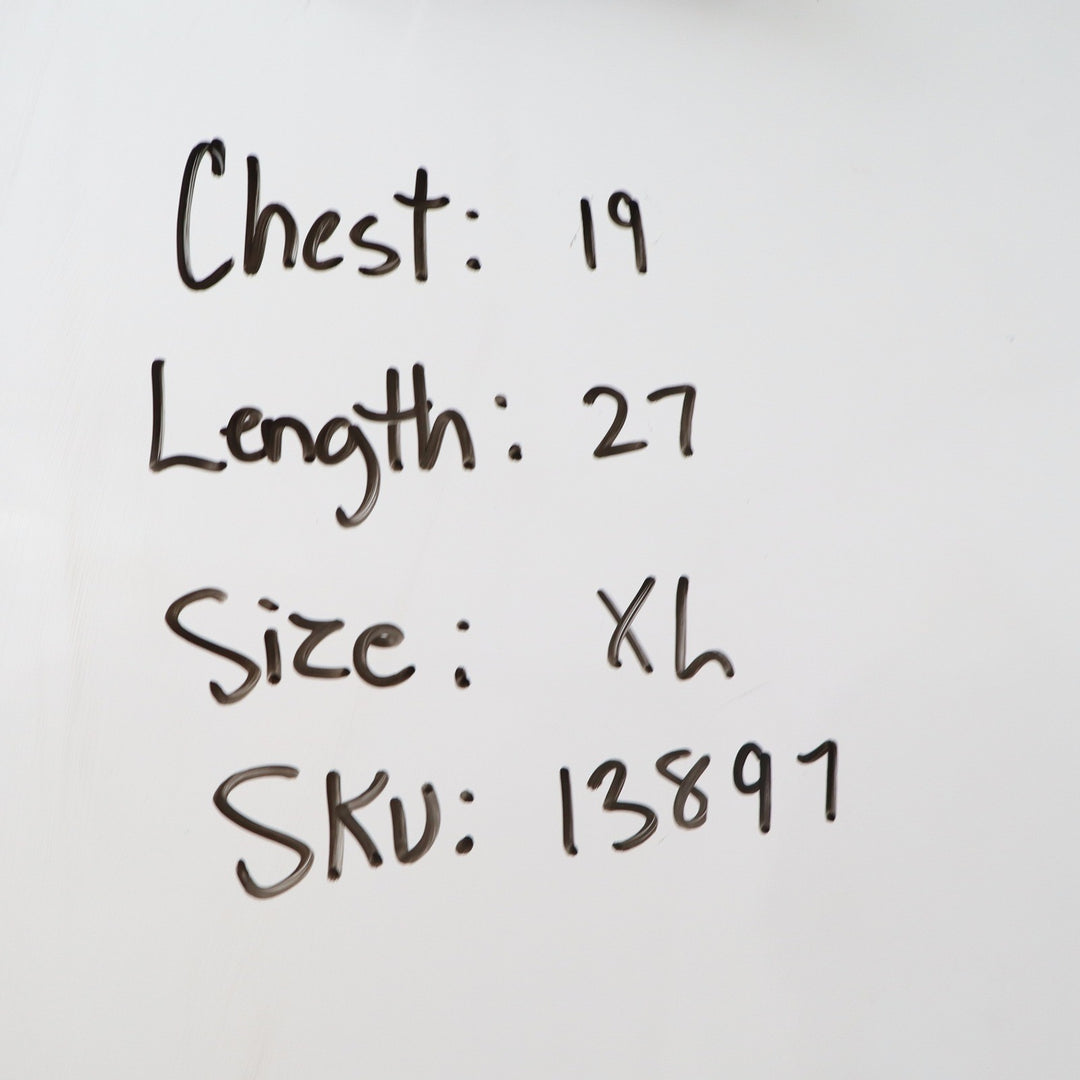 Chest: 19
Length: 27
Size: XL
SKU: 13897